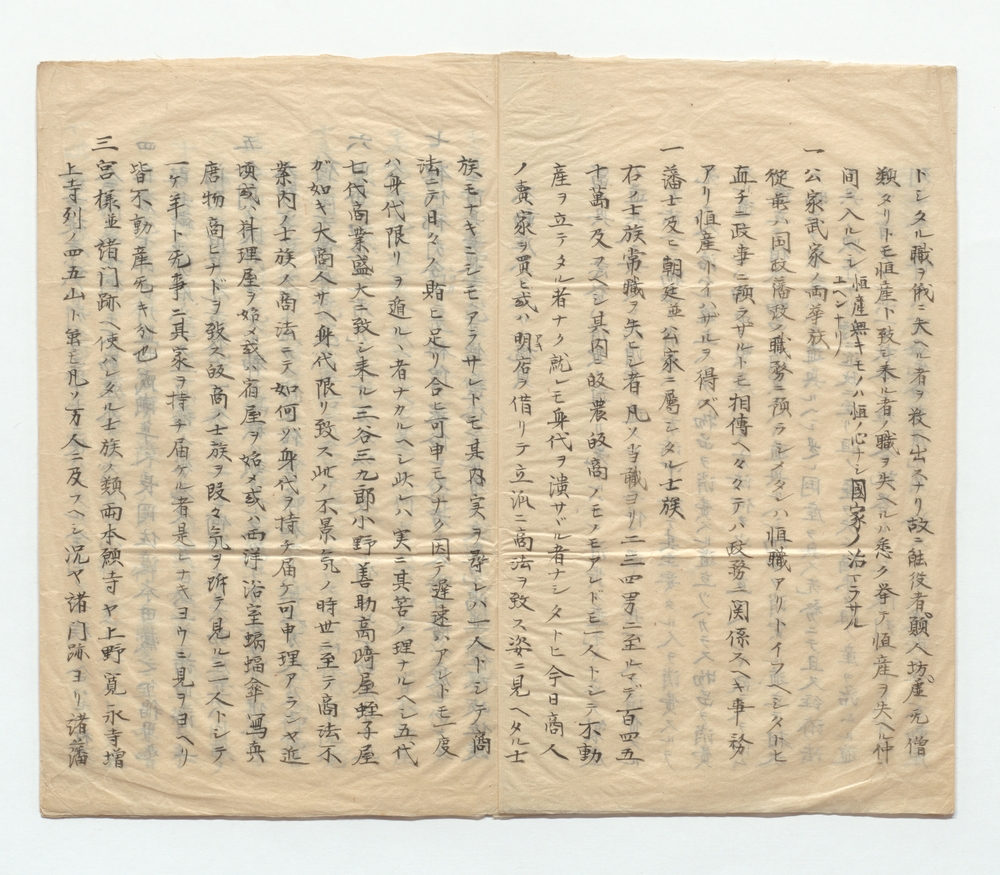 トシタル職ヲ俄ニ失ヘル者ヲ救ヘ出スナリ故ニ能役者顛人坊虚无僧
類タリトモ恒産ト致シ来ル者ノ職ヲ失ヘルハ悉ク挙テ恒産ヲ失ヘル仲
間ニ入ルヘシ恒産無キモノハ恒ノ心ナシ國家ノ治マラサル
ユヘンナリ
一 公家武家ノ両華族
従来ハ国政藩政ノ職務ニ預ラシメタレハ恒職アリトイフヘシタトヒ
直チニ政事ニ預ラザルトモ相傳ヘ々々テハ政務ニ関係スヘキ事務
アリ恒産トイハザルヲ得ズ
一 藩士及ヒ朝廷並公家ニ属シタル士族
右ノ士族常職ヲ失ヒシ者凡ソ当職ヨリ二三四男ニ至ルマデ百四五
十萬ニ及フヘシ其内ニ皈農皈商ノモノモアレドモ一人トシテ不動
産ヲ立テタル者ナク就レモ身代ヲ潰サゞル者ナシタトヒ今日商人
ノ賣家ヲ買ヒ或ハ明店ヲ借リテ立派ニ商法ヲ致ス姿ニ見ヘタル士
族モナキニシモアラサレトモ其内実ヲ尋レハ一人トシテ商
法ニテ日々ノ食貽ヒ足リ合ヒ可申モノナク因テ遅速ハアレトモ一度
ハ身代限リヲ遁ルヽ者ナカルヘシ此レハ実ニ其筈ノ理ナルヘシ五代
七代商業盛大ニ致シ来ル三谷三九郎小野善助高崎屋蛭子屋
カ如キ大商人サヘ身代限リ致ス此ノ不景気ノ時世ニ至テ商法不
案内ノ士族ノ商法ニテ如何ソ身代ヲ持チ届ケ可申理アランヤ近
頃或ハ料理屋ヲ始メ或ハ宿屋ヲ始メ或ハ西洋浴室蝙蝠傘寫真
唐物商ヒナドヲ致ス皈商ノ士族ヲ段々気ヲ附テ見ルニ一人トシテ
一ケ年ト无事ニ其家ヲ持チ届ケル者是レナキヨウニ見ヲヨヘリ
皆不動産无キ分也
三 宮様並諸门跡ヘ使ハレタル士族ノ類両本願寺ヤ上野寛永寺増
上寺列ノ四五山ト雖モ凡ソ万人ニ及フヘシ况ヤ諸门跡ヨリ諸藩